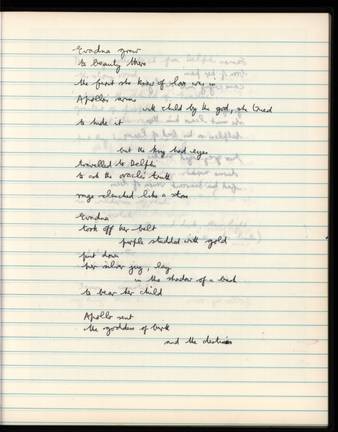 Evadna grew
to beauty there
the first she knew of love was in
Apollo's arms
with child by the god, she tried
to hide it
but the king had eyes
travelled to Delphi
to ask the oracle's truth
rage clenched like a stone
Evadna
took off her belt
purple studded with gold
put down
her silver jug, lay
in the shadow of a
to bear her child
Apollo sent
the goddess of birth
and the destinies